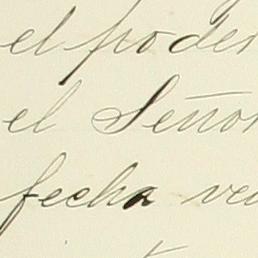 el poder
el Señor
fecha